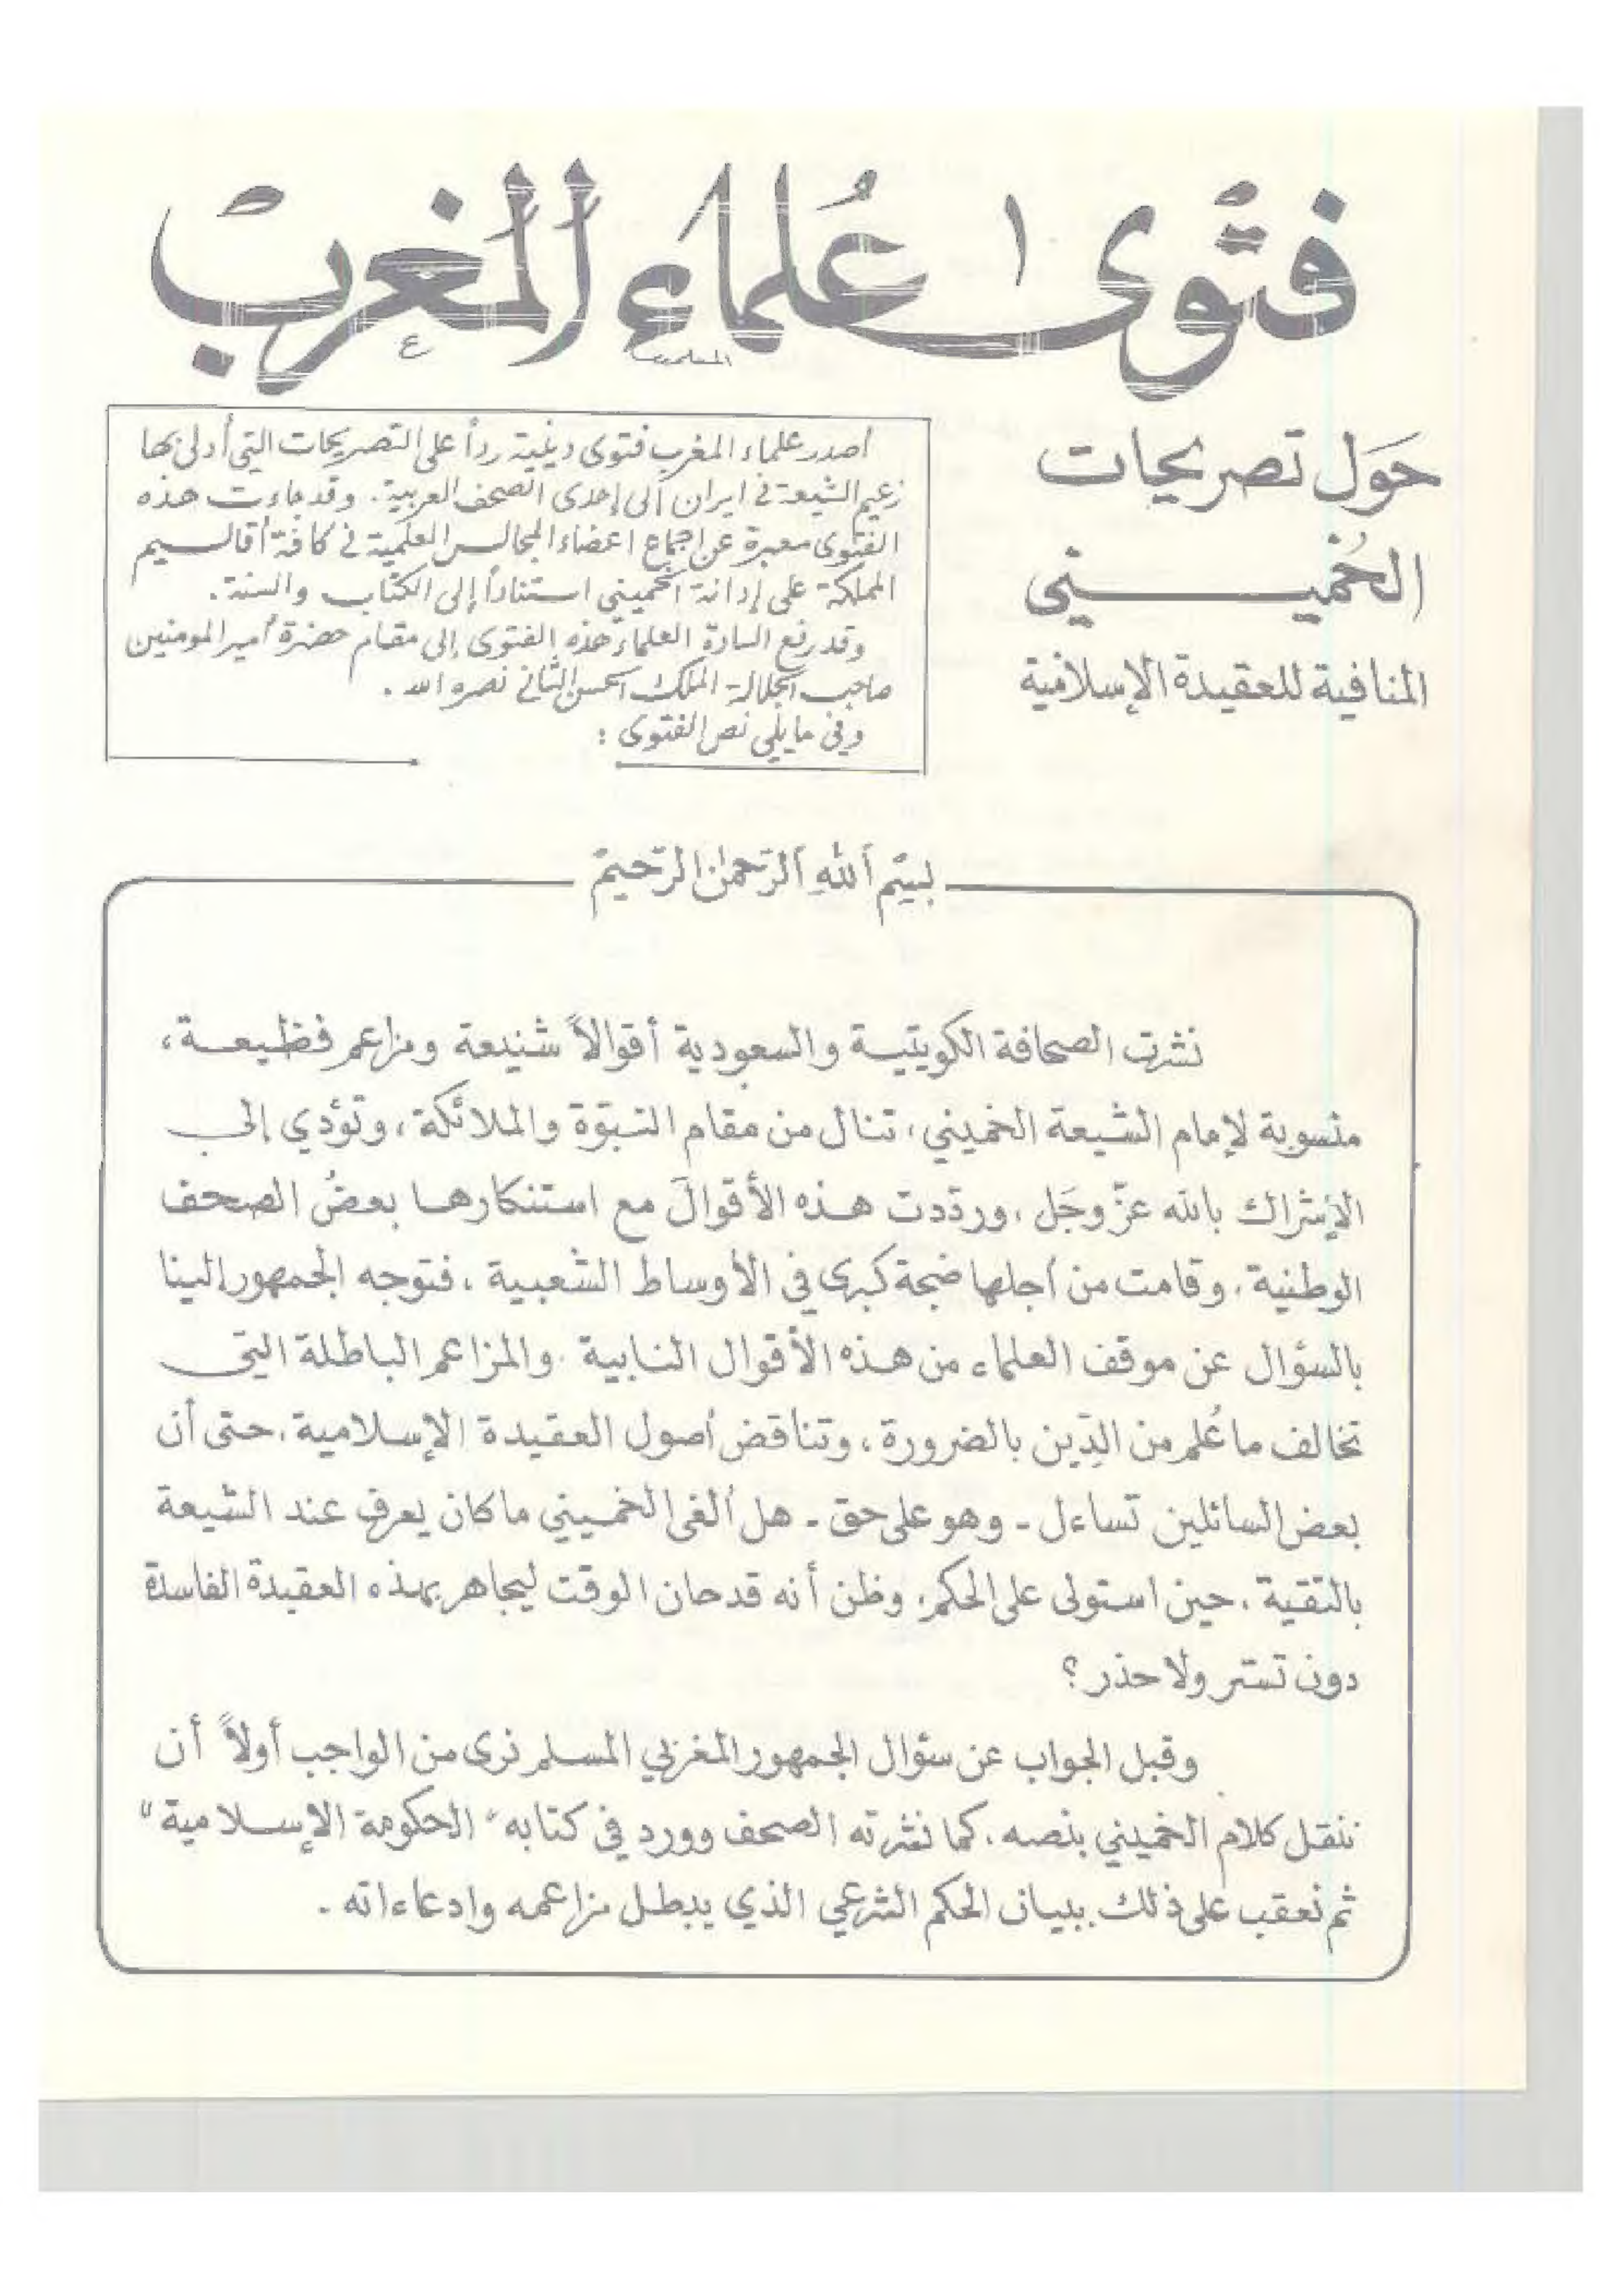 فتوى علماء المغرب
حول تصريحات
الخميـــني
المنافية للعقيدة الإسلامية
أصدر علماء المغرب فتوى دينية رداً على التصريحات التي أدلى بها
زعيم الشيعة في ايران الى إحدى الصحف العربية. وقد جاءت هذه
الفتوى معبرة عن إجماع اعضاء المجالس العلمية في كافة أقاليم
المملكة على إدانة الخميني استناداً إلى الكتاب والسنة.
وقد رفع السادة العلماء هذه الفتوى إلى مقام حضرة أمير المومنين
صاحب الجلالة الملك الحسن الثاني نصره الله.
وفي ما يلي نص الفتوى:
بِسْمِ اللهِ الرَّحمٰنِ الرَّحِيمْ
نشرت الصحافة الكويتية والسعودية أقوالاً شنيعة ومزاعم فظيعة،
منسوبة لإمام الشيعة الخميني، تنال من مقام النبوّة والملائكة، وتؤدي إلى
الإشراك بالله عزّ وجَل، وردّدت هذه الأقوالَ مع استنكارها بعضُ الصحف
الوطنية، وقامت من أجلها ضجة كبرى في الأوساط الشعبية، فتوجه الجمهور إلينا
بالسؤال عن موقف العلماء من هذه الأقوال النابية، والمزاعم الباطلة التي
تخالف ما عُلم من الدِّين بالضرورة، وتناقض أصول العقيدة الإسلامية، حتى أن
بعض السائلين تساءل - وهو على حق - هل ألغى الخميني ما كان يعرف عند الشيعة
بالتقية، حين استولى على الحكم، وظن أنه قد حان الوقت ليجاهر بهذه العقيدة الفاسدة
دون تستر ولا حذر؟
وقبل الجواب عن سؤال الجمهور المغربي المسلم نرى من الواجب أولاً أن
ننقل كلام الخميني بنصه، كما نشرته الصحف وورد في كتابه "الحكومة الإسلامية"
ثم نعقب على ذلك ببيان الحكم الشرعي الذي يبطل مزاعمه وادعاءاته.